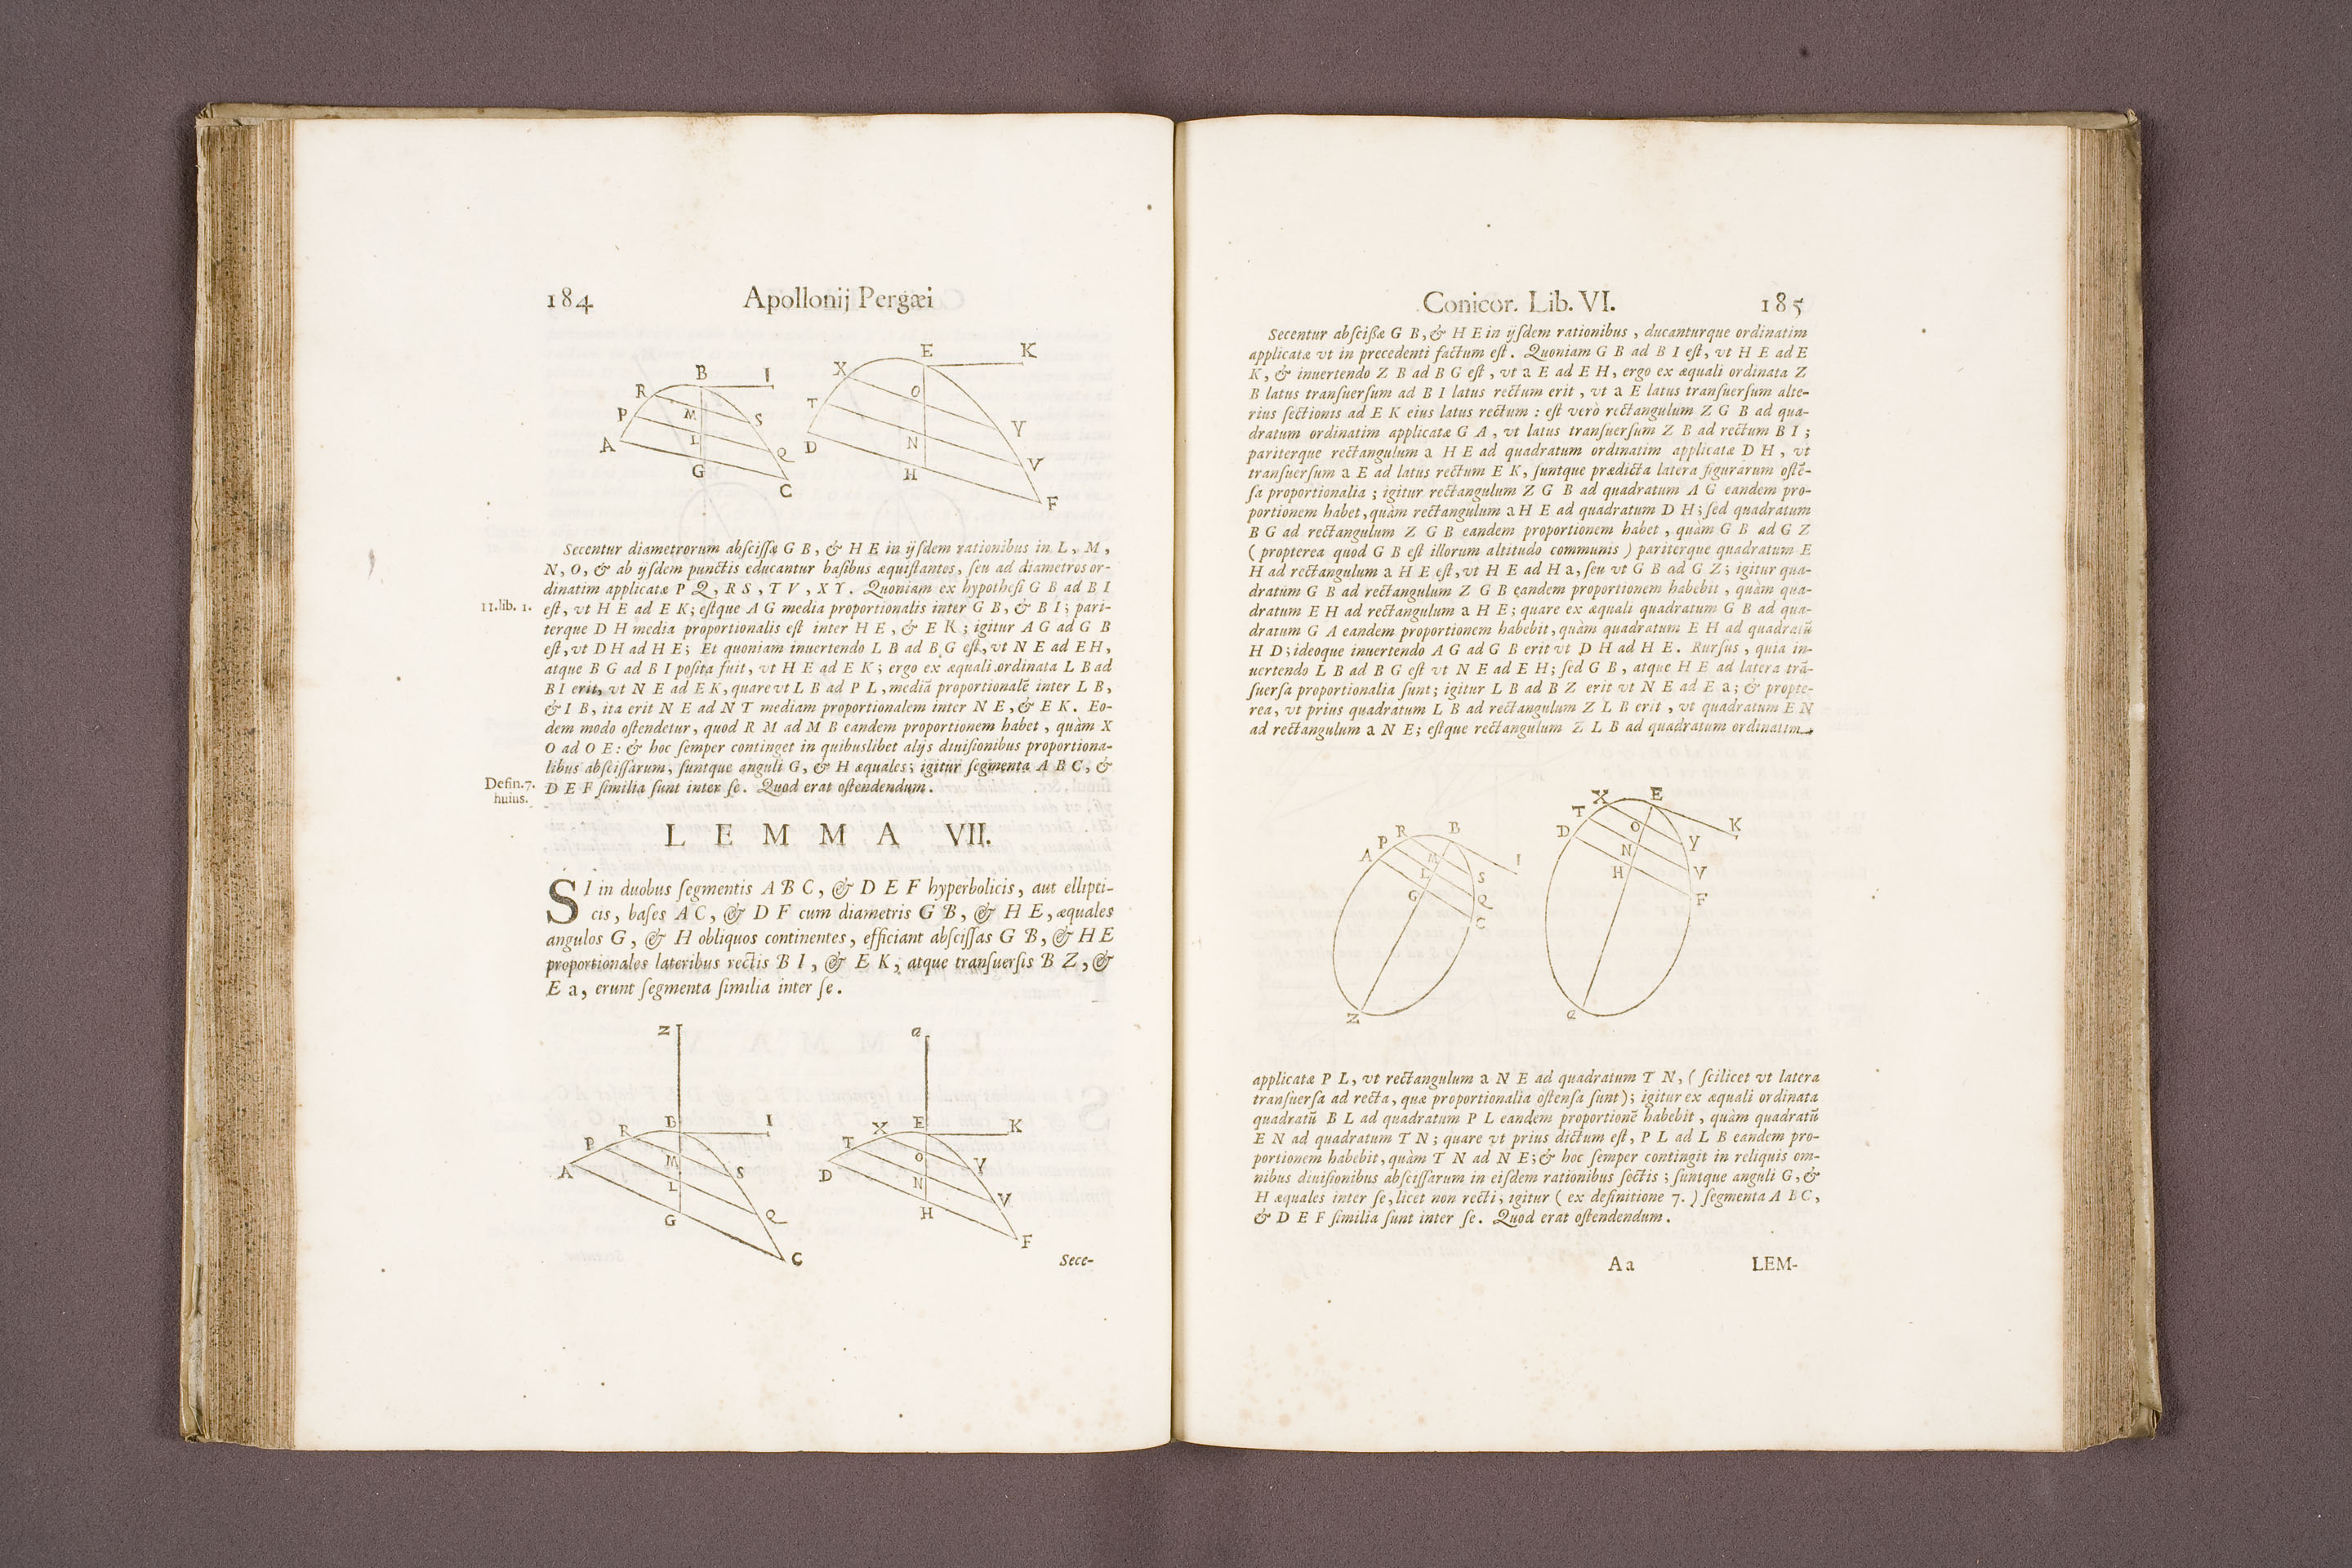 184 Apollonij Pergæi
B I
R
P M S
A L Q
G C
E K
X
O
T Y
D N V
H F
Secentur diametrorum abſciſſæ G B, & H E in ijſdem rationibus in L, M,
N, O, & ab ijſdem punctis educantur baſibus æquiſtantes, ſeu ad diametros or-
dinatim applicatæ P Q, R S, T V, X Y. Quoniam ex hypotheſi G B ad B I
11.lib. 1.
eſt, vt H E ad E K; eſtque A G media proportionalis inter G B, & B I; pari-
terque D H media proportionalis eſt inter H E, & E K; igitur A G ad G B
eſt, vt D H ad H E; Et quoniam inuertendo L B ad B G eſt, vt N E ad E H,
atque B G ad B I poſita fuit, vt H E ad E K; ergo ex æquali ordinata L B ad
B I erit, vt N E ad E K, quare vt L B ad P L, mediã proportionalẽ inter L B,
& I B, ita erit N E ad N T mediam proportionalem inter N E, & E K. Eo-
dem modo oſtendetur, quod R M ad M B eandem proportionem habet, quàm X
O ad O E: & hoc ſemper continget in quibuslibet alijs diuiſionibus proportiona-
libus abſciſſarum, ſuntque anguli G, & H æquales; igitur ſegmenta A B C, &
Defin.7.
huius.
D E F ſimilia ſunt inter ſe. Quod erat oſtendendum.
LEMMA VII.
SI in duobus ſegmentis A B C, & D E F hyperbolicis, aut ellipti-
cis, baſes A C, & D F cum diametris G B, & H E, æquales
angulos G, & H obliquos continentes, efficiant abſciſſas G B, & H E
proportionales lateribus rectis B I, & E K, atque tranſuerſis B Z, &
E a, erunt ſegmenta ſimilia inter ſe.
Z
B I
R
P
A M S
L
G Q
C
a
E K
X
T O Y
D N V
H F
Sece-
Conicor. Lib. VI. 185
Secentur abſcißæ G B, & H E in ijſdem rationibus, ducanturque ordinatim
applicatæ vt in precedenti factum eſt. Quoniam G B ad B I eſt, vt H E ad E
K, & inuertendo Z B ad B G eſt, vt a E ad E H, ergo ex æquali ordinata Z
B latus tranſuerſum ad B I latus rectum erit, vt a E latus tranſuerſum alte-
rius ſectionis ad E K eius latus rectum: eſt verò rectangulum Z G B ad qua-
dratum ordinatim applicatæ G A, vt latus tranſuerſum Z B ad rectum B I;
pariterque rectangulum a H E ad quadratum ordinatim applicatæ D H, vt
tranſuerſum a E ad latus rectum E K, ſuntque prædicta latera figurarum oſtẽ-
ſa proportionalia; igitur rectangulum Z G B ad quadratum A G eandem pro-
portionem habet, quàm rectangulum a H E ad quadratum D H; ſed quadratum
B G ad rectangulum Z G B eandem proportionem habet, quàm G B ad G Z
(propterea quod G B eſt illorum altitudo communis) pariterque quadratum E
H ad rectangulum a H E eſt, vt H E ad H a, ſeu vt G B ad G Z; igitur qua-
dratum G B ad rectangulum Z G B eandem proportionem habebit, quàm qua-
dratum E H ad rectangulum a H E; quare ex æquali quadratum G B ad qua-
dratum G A eandem proportionem habebit, quàm quadratum E H ad quadratũ
H D; ideoque inuertendo A G ad G B erit vt D H ad H E. Rurſus, quia in-
uertendo L B ad B G eſt vt N E ad E H; ſed G B, atque H E ad latera trã-
ſuerſa proportionalia ſunt; igitur L B ad B Z erit vt N E ad E a; & propte-
rea, vt prius quadratum L B ad rectangulum Z L B erit, vt quadratum E N
ad rectangulum a N E; eſtque rectangulum Z L B ad quadratum ordinatim
R B
P
A M I
L S
G Q
C
Z
X E
T
D O K
N Y
H V
F
a
applicatæ P L, vt rectangulum a N E ad quadratum T N, (ſcilicet vt latera
tranſuerſa ad recta, quæ proportionalia oſtenſa ſunt); igitur ex æquali ordinata
quadratũ B L ad quadratum P L eandem proportionẽ habebit, quàm quadratũ
E N ad quadratum T N; quare vt prius dictum eſt, P L ad L B eandem pro-
portionem habebit, quàm T N ad N E; & hoc ſemper contingit in reliquis om-
nibus diuiſionibus abſciſſarum in eiſdem rationibus ſectis; ſuntque anguli G, &
H æquales inter ſe, licet non recti, igitur (ex definitione 7.) ſegmenta A B C,
& D E F ſimilia ſunt inter ſe. Quod erat oſtendendum.
Aa LEM-